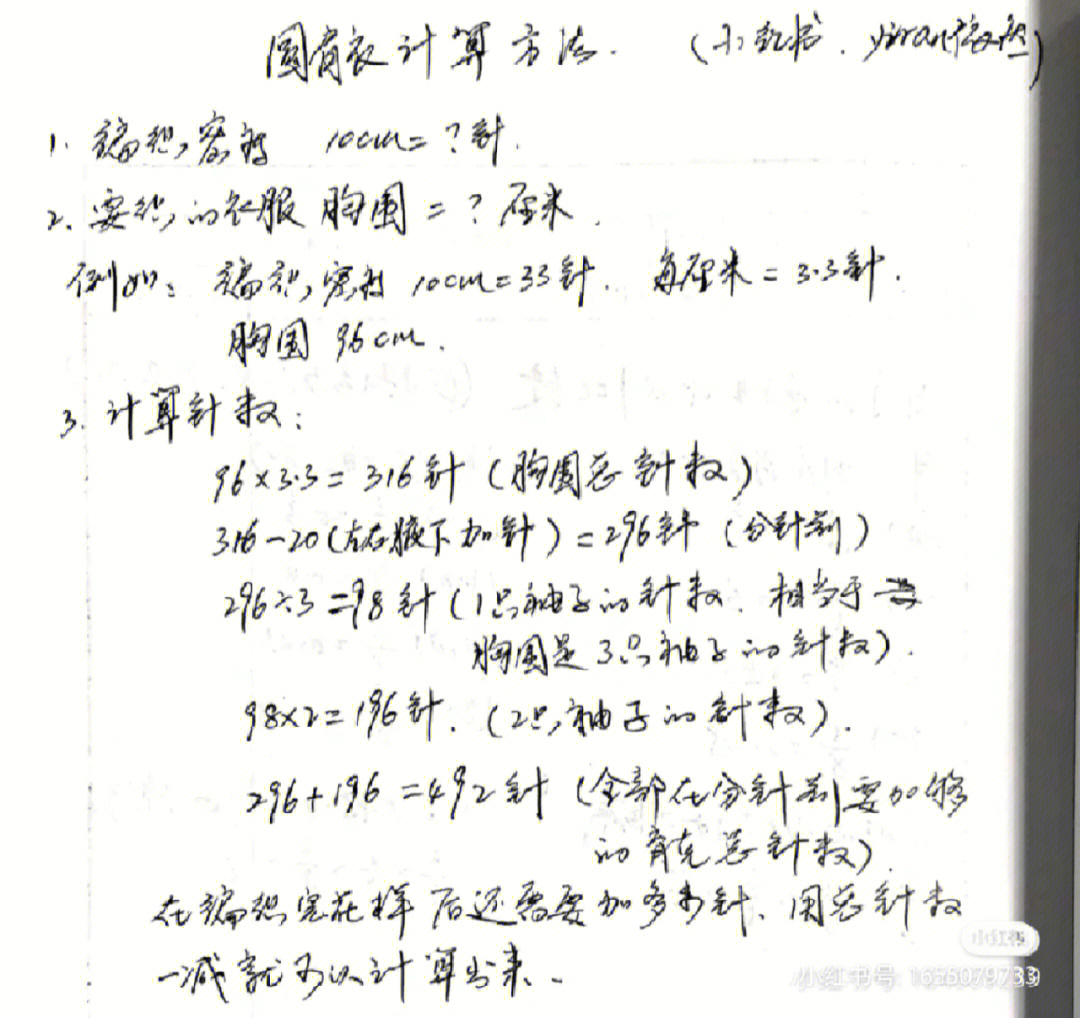 圆肩衣计算方法. (小红书. yiran依然)
1. 编织密度 10cm=?针.
2. 要织的衣服 胸围=?厘米.
例如: 编织密度 10cm=33针. 每厘米=3.3针.
胸围 96cm.
3. 计算针数:
96×3.3=316针 (胸围总针数)
316-20(左右腋下加针)=296针 (分针前)
296÷3=98针 (1只袖子的针数. 相当于
胸围是3只袖子的针数).
98×2=196针. (2只袖子的针数).
296+196=492针 (全部在分针前要加够
的育克总针数)
在编织完花样后还需要加多少针、用总针数
一减就可以计算出来.
小红书
小红书号: 1656079739